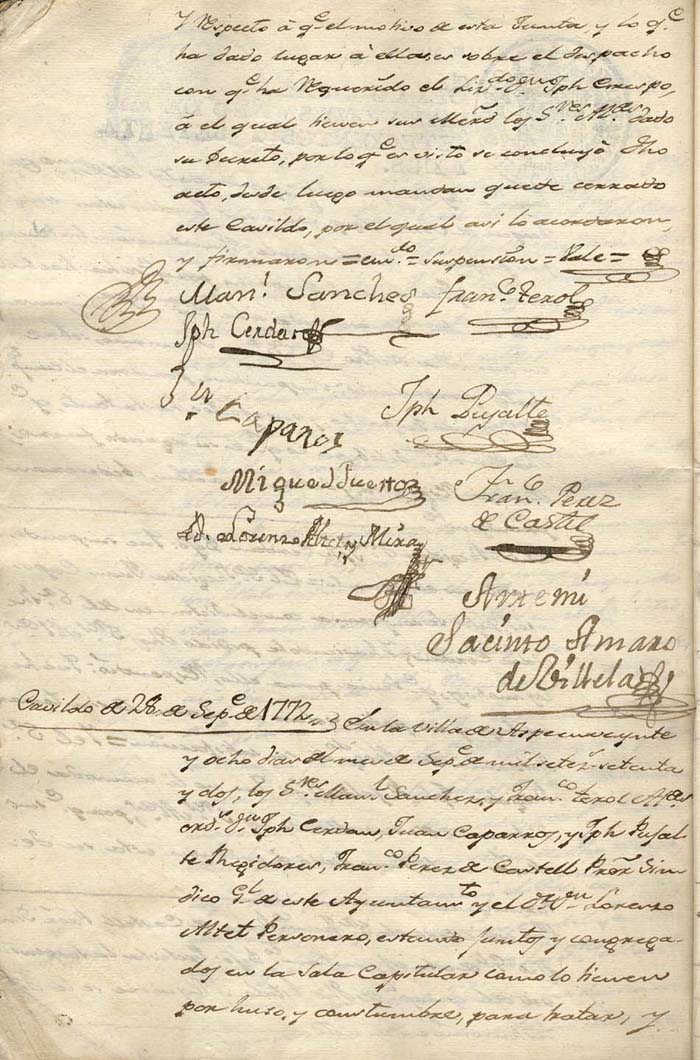 Y respecto à q.e el motivo de esta Junta, y lo q.e
ha dado lugar à ella, es sobre el Despacho
con q.e ha requerido el Liz.do D.n Jph Crespo,
à el qual tienen sus Merd.s los S.res Al.des dado
su Decreto, por lo q.e es visto se concluyó dho
acto, desde luego mandan quede cerrado
este Cavildo, por el qual asi lo acordaron,
y firmaron = = suspensión = Vale =
Man.l Sanches Fran.co Terol
Jph Cerdan
Juº Caparros
Jph Pujalte
Miguel Puerto
Fran.co Perez
de Castell
D.r D. Lorenzo Mira
Antemi
Jacinto Amaro
de Villela
Cavildo de 28 de Sep.e de 1772
En la Villa de Aspe en veynte
y ocho dias del mes de Sep.e de mil setez.s setenta
y dos, los S.res Man.l Sanchez, y Fran.co Terol Al.des
ord.s D.n Jph Cerdan, Juan Caparros, y Jph Pujal
te Regidores, Fran.co Perez de Castell Pro.r Sin
dico G.l de este Ayuntam.to y el D.r D.n Lorenzo
Altet Personero, estando juntos y congrega-
dos en la Sala Capitular como lo tienen
por huso, y costumbre, para tratar, y